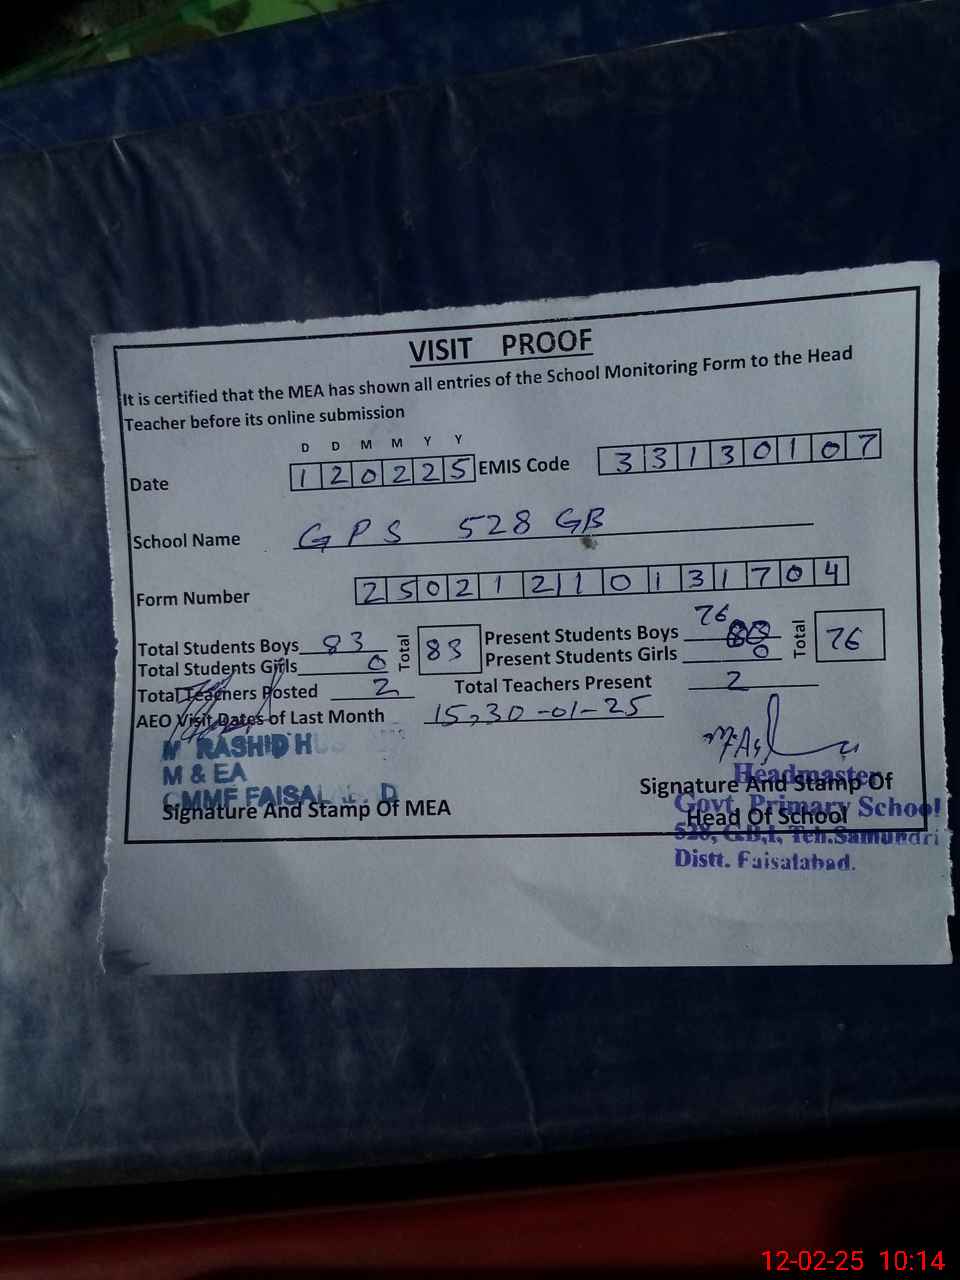 VISIT PROOF
It is certified that the MEA has shown all entries of the School Monitoring Form to the Head
Teacher before its online submission
D D M M Y Y
Date 120225 EMIS Code 33130107
School Name GPS 528 GB
Form Number 25021210131704
Total Students Boys 83 Total 83 Present Students Boys 76 Total 76
Total Students Girls 0 Present Students Girls 0
Total Teachers Posted 2 Total Teachers Present 2
AEO Visit Dates of Last Month 15,30-01-25
M RASHID
M & EA
CMMF FAISALABAD
Signature And Stamp Of MEA
Headmaster
Signature And Stamp Of
Govt. Primary School
Head Of School
528, G.B,I, Teh.Samundri
Distt. Faisalabad.
12-02-25 10:14